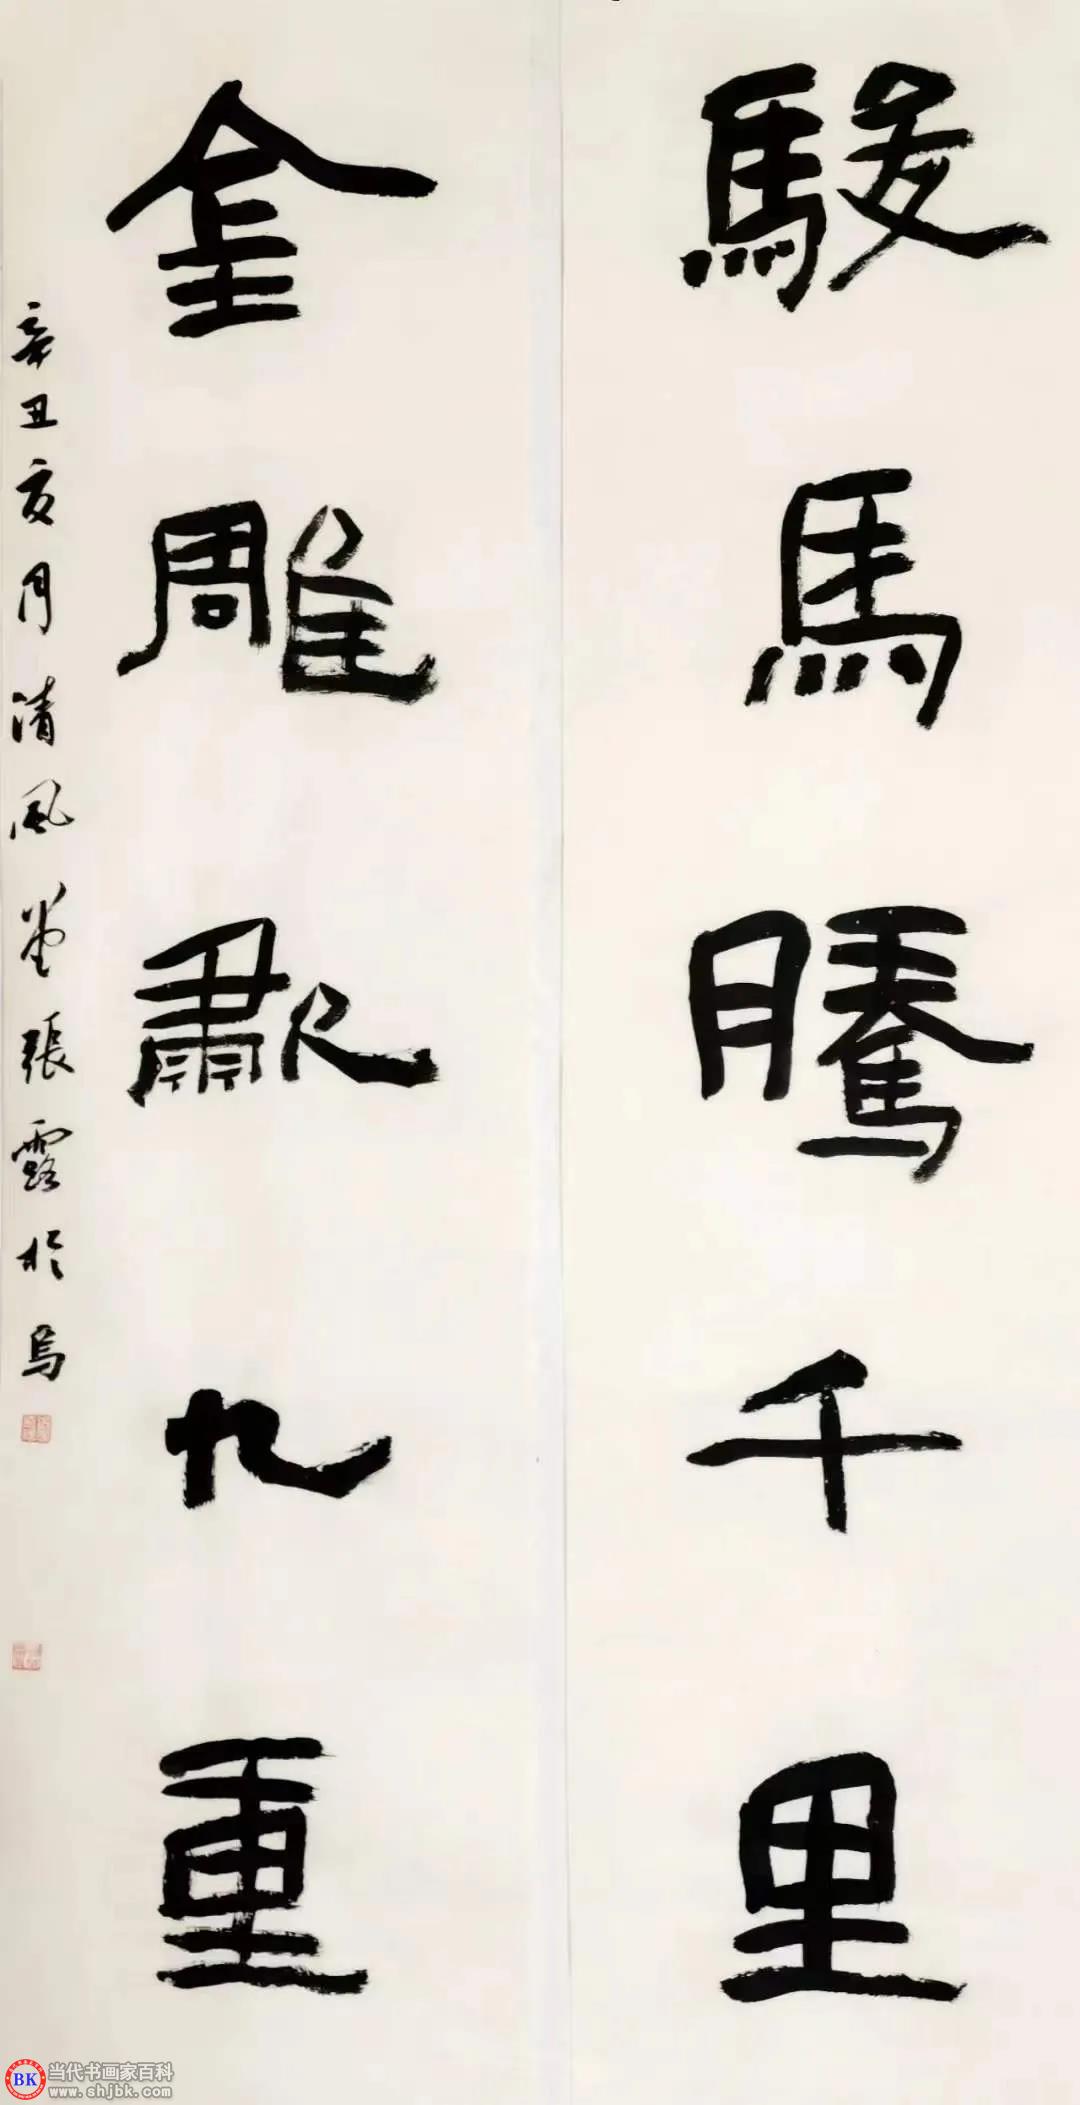 駿馬騰千里
金雕歗九重
辛丑亥月清風堂張露於烏
BK
当代书画家百科
www.shjbk.com